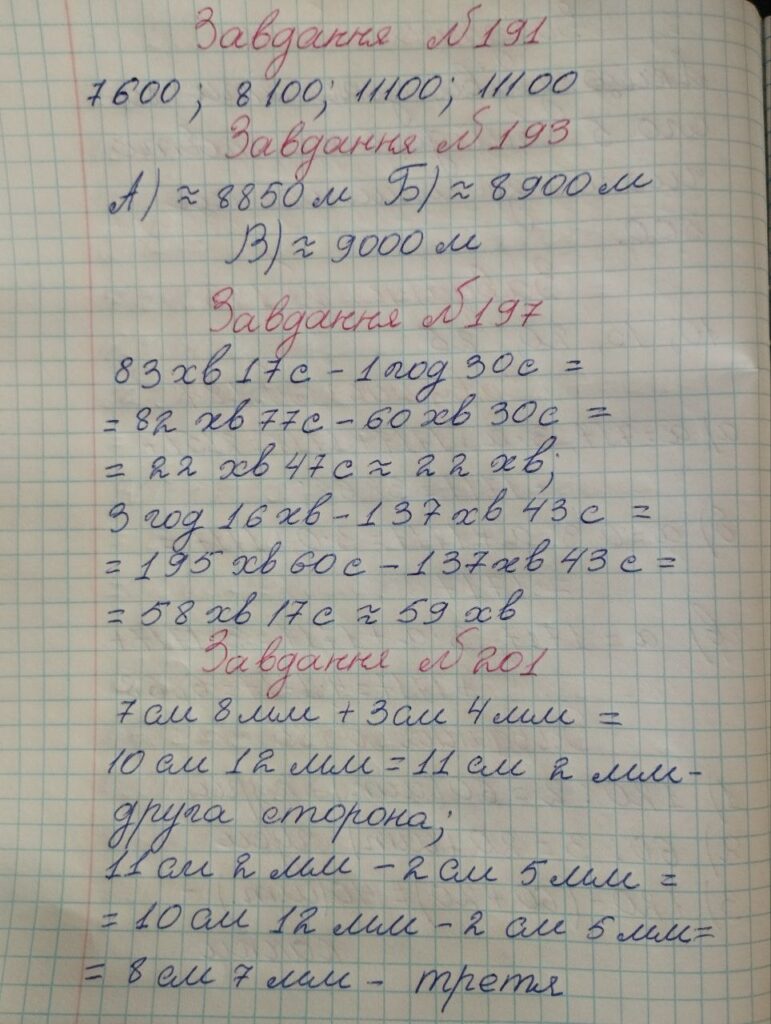 Завдання №191
7600; 8100; 11100; 11100
Завдання №193
А) ≈ 8850 м Б) ≈ 8900 м
В) ≈ 9000 м
Завдання №197
83 хв 17 с - 1 год 30 с =
= 82 хв 77 с - 60 хв 30 с =
= 22 хв 47 с ≈ 22 хв;
3 год 16 хв - 137 хв 43 с =
= 195 хв 60 с - 137 хв 43 с =
= 58 хв 17 с ≈ 59 хв
Завдання №201
7 см 8 мм + 3 см 4 мм =
10 см 12 мм = 11 см 2 мм -
друга сторона;
11 см 2 мм - 2 см 5 мм =
= 10 см 12 мм - 2 см 5 мм =
= 8 см 7 мм - третя